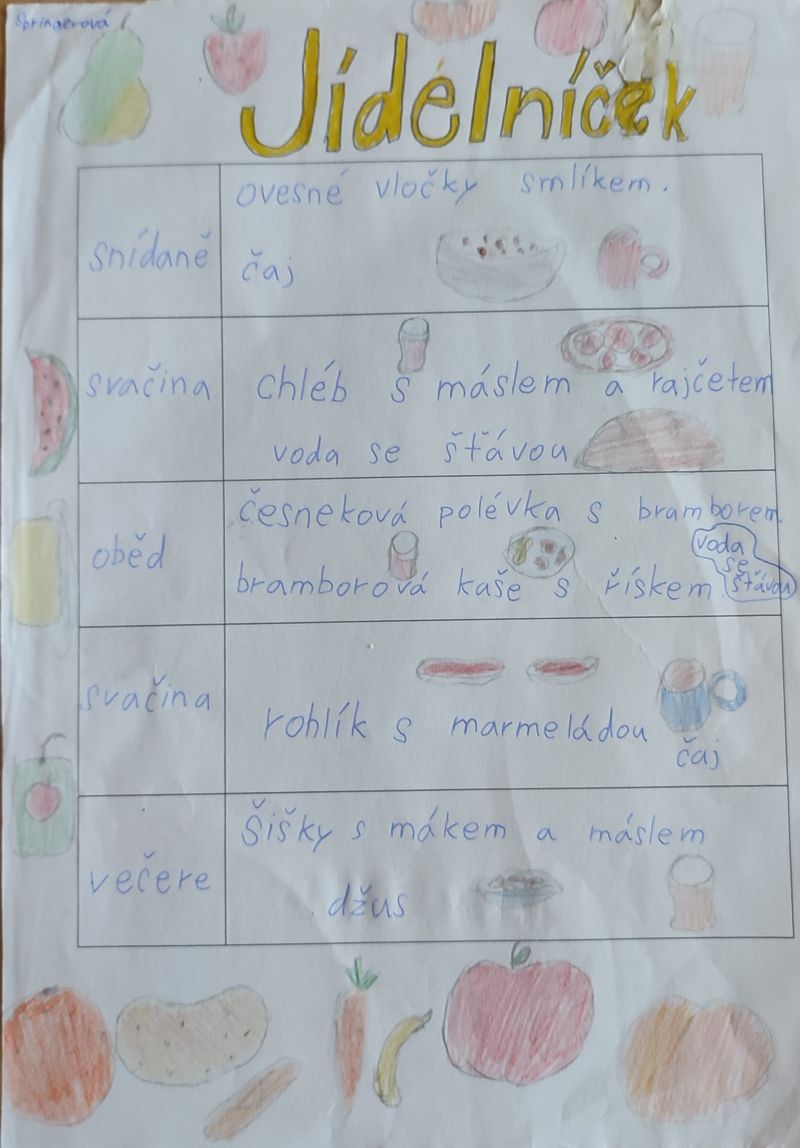 Springerová
Jídelníček
snídaně
ovesné vločky smlíkem.
čaj
svačina
chléb s máslem a rajčetem
voda se šťávou
oběd
česneková polévka s bramborem.
bramborová kaše s řískem
voda
se
šťávou
svačina
rohlík s marmeládou
čaj
večere
Šišky s mákem a máslem
džus